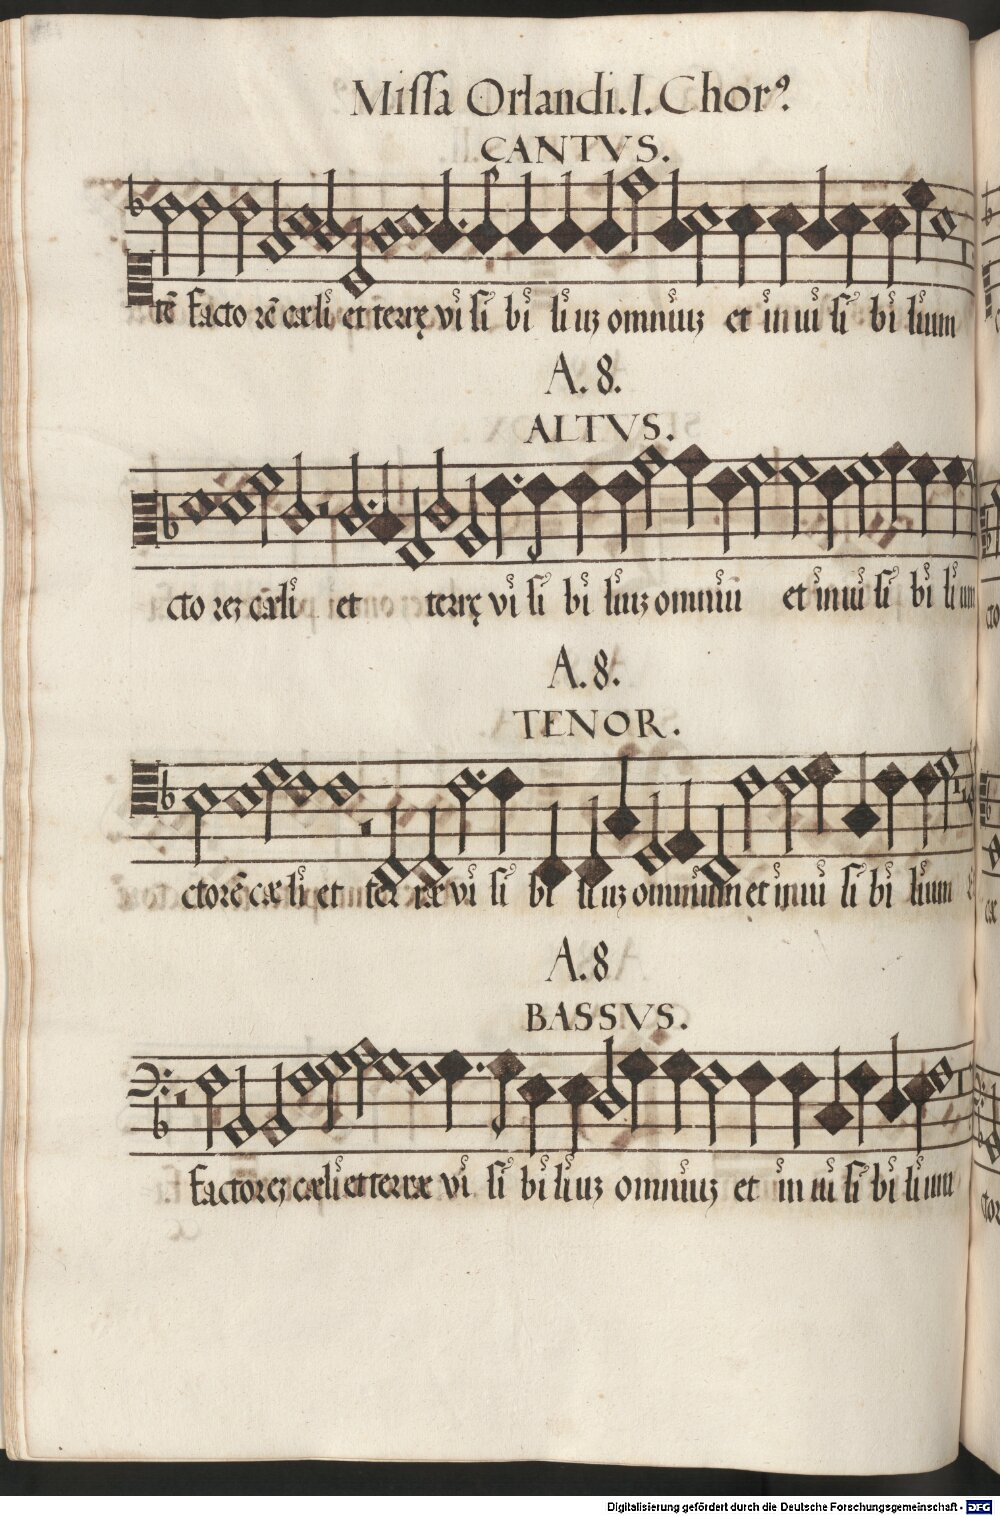 Missa Orlandi. I. Chorꝰ.
CANTVS.
tē Facto rē cæli et terrę visibiliuʒ omniuʒ et inuisibilium
A. 8.
ALTVS.
cto reʒ cæli et terrę visibiliuʒ omniū et inuisibilium
A. 8.
TENOR.
ctorē cæli et terræ visibiliuʒ omnium et inuisibilium
A. 8
BASSVS.
Factoreʒ cæli et terræ visibiliuʒ omniuʒ et inuisibilium
Digitalisierung gefördert durch die Deutsche Forschungsgemeinschaft - DFG